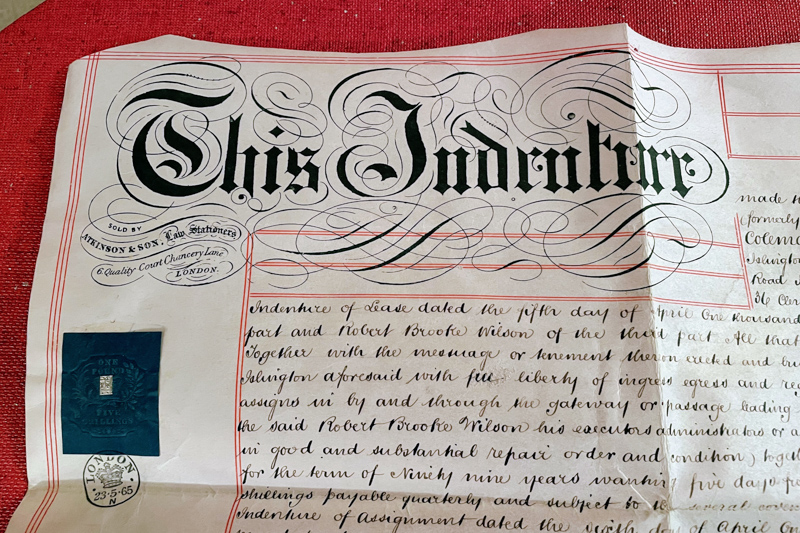 This Indenture
SOLD BY
ATKINSON & SON, Law Stationers
6 Quality Court Chancery Lane
LONDON.
made
(formerly
Islington
Road
36
Indenture of Lease dated the fifth day of April One thousand
part and Robert Brooke Wilson of the third part All that
Together with the messuage or tenement thereon erected and
Islington aforesaid with free liberty of ingress egress and
assigns in by and through the gateway or passage leading
the said Robert Brooke Wilson his executors administrators or
in good and substantial repair order and condition)
for the term of Ninety nine years wanting five days
shillings payable quarterly and subject to the several
Indenture of Assignment dated the sixth day of April
ONE
POUND
FIVE
SHILLINGS
LONDON
23·5·65
N